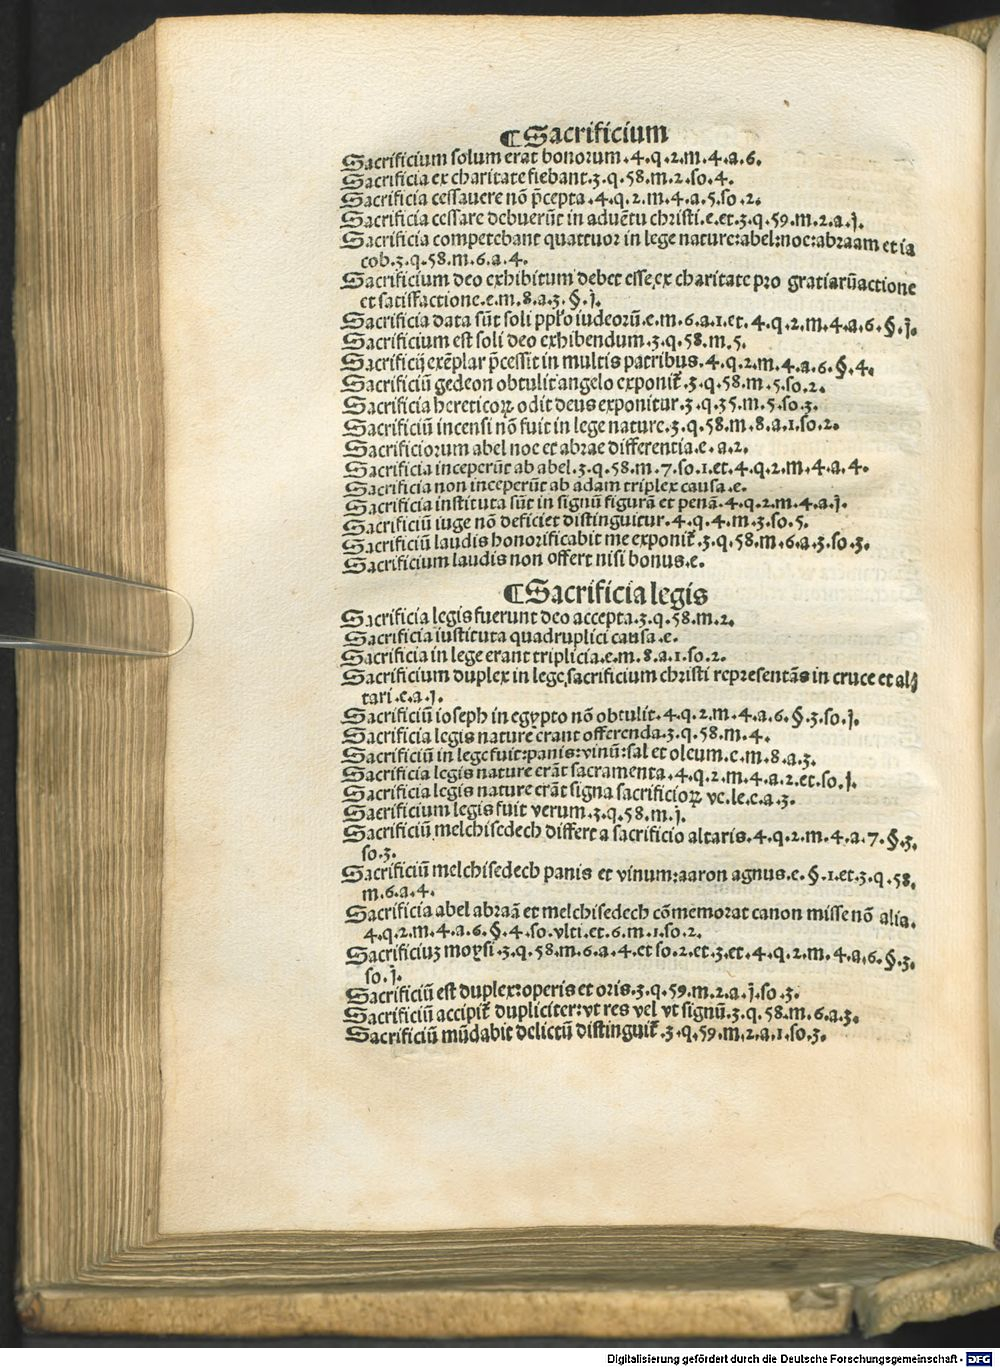 ¶Sacrificium
Sacrificium solum erat bonorum.4.q.2.m.4.a.6.
Sacrificia ex charitate fiebant.3.q.58.m.2.so.4.
Sacrificia cessauere nō p̄cepta.4.q.2.m.4.a.5.so.2.
Sacrificia cessare debuerūt in aduētu christi.e.et.3.q.59.m.2.a.j.
Sacrificia competebant quattuor in lege nature:abel:noe:abraam et ia
cob.3.q.58.m.6.a.4.
Sacrificium deo exhibitum debet esse,ex charitate pro gratiarūactione
et satisfactione.e.m.8.a.3.§.j.
Sacrificia data sūt soli pplo iudeorū.e.m.6.a.1.et.4.q.2.m.4.a.6.§.j.
Sacrificium est soli deo exhibendum.3.q.58.m.5.
Sacrificij exēplar p̄cessit in multis patribus.4.q.2.m.4.a.6.§.4.
Sacrificiū gedeon obtulit angelo exponit̄.3.q.58.m.5.so.2.
Sacrificia hereticoꝝ odit deus exponitur.3.q.35.m.5.so.3.
Sacrificiū incensi nō fuit in lege nature.3.q.58.m.8.a.1.so.2.
Sacrificiorum abel noe et abrae differentia.e.a.2.
Sacrificia inceperūt ab abel.3.q.58.m.7.so.1.et.4.q.2.m.4.a.4.
Sacrificia non inceperūt ab adam triplex causa.e.
Sacrificia instituta sūt in signū figurā et penā.4.q.2.m.4.a.j.
Sacrificiū iuge nō deficiet distinguitur.4.q.4.m.3.so.5.
Sacrificiū laudis honorificabit me exponit̄.3.q.58.m.6.a.3.so.3.
Sacrificium laudis non offert nisi bonus.e.
¶Sacrificia legis
Sacrificia legis fuerunt deo accepta.3.q.58.m.2.
Sacrificia iustituta quadruplici causa.e.
Sacrificia in lege erant triplicia.e.m.8.a.1.so.2.
Sacrificium duplex in lege,sacrificium christi representās in cruce et al⸗
tari.e.a.j.
Sacrificiū ioseph in egypto nō obtulit.4.q.2.m.4.a.6.§.3.so.j.
Sacrificia legis nature erant offerenda.3.q.58.m.4.
Sacrificiū in lege fuit:panis:vinū:sal et oleum.e.m.8.a.3.
Sacrificia legis nature erāt sacramenta.4.q.2.m.4.a.2.et.so.j.
Sacrificia legis nature erāt signa sacrificioꝝ ve.le.e.a.3.
Sacrificium legis fuit verum.3.q.58.m.j.
Sacrificiū melchisedech differt a sacrificio altaris.4.q.2.m.4.a.7.§.3.
so.3.
Sacrificiū melchisedech panis et vinum:aaron agnus.e.§.1.et.3.q.58.
m.6.a.4.
Sacrificia abel abraā et melchisedech cōmemorat canon misse nō alia.
4.q.2.m.4.a.6.§.4.so.vlti.et.6.m.1.so.2.
Sacrificiuz moysi.3.q.58.m.6.a.4.et so.2.et.3.et.4.q.2.m.4.a.6.§.3.
so.j.
Sacrificiū est duplex:operis et oris.3.q.59.m.2.a.j.so.3.
Sacrificiū accipit̄ dupliciter:vt res vel vt signū.3.q.58.m.6.a.3.
Sacrificiū mūdabit delictū distinguit̄.3.q.59.m.2.a.1.so.3.
Digitalisierung gefördert durch die Deutsche Forschungsgemeinschaft - DFG